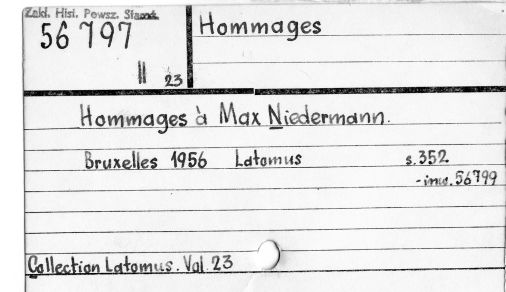 Zakł. Hist. Powsz. Staroż.
56 797
II 23
Hommages
Hommages à Max Niedermann.
Bruxelles 1956 Latomus s. 352
- inw. 56799
Collection Latomus. Vol. 23